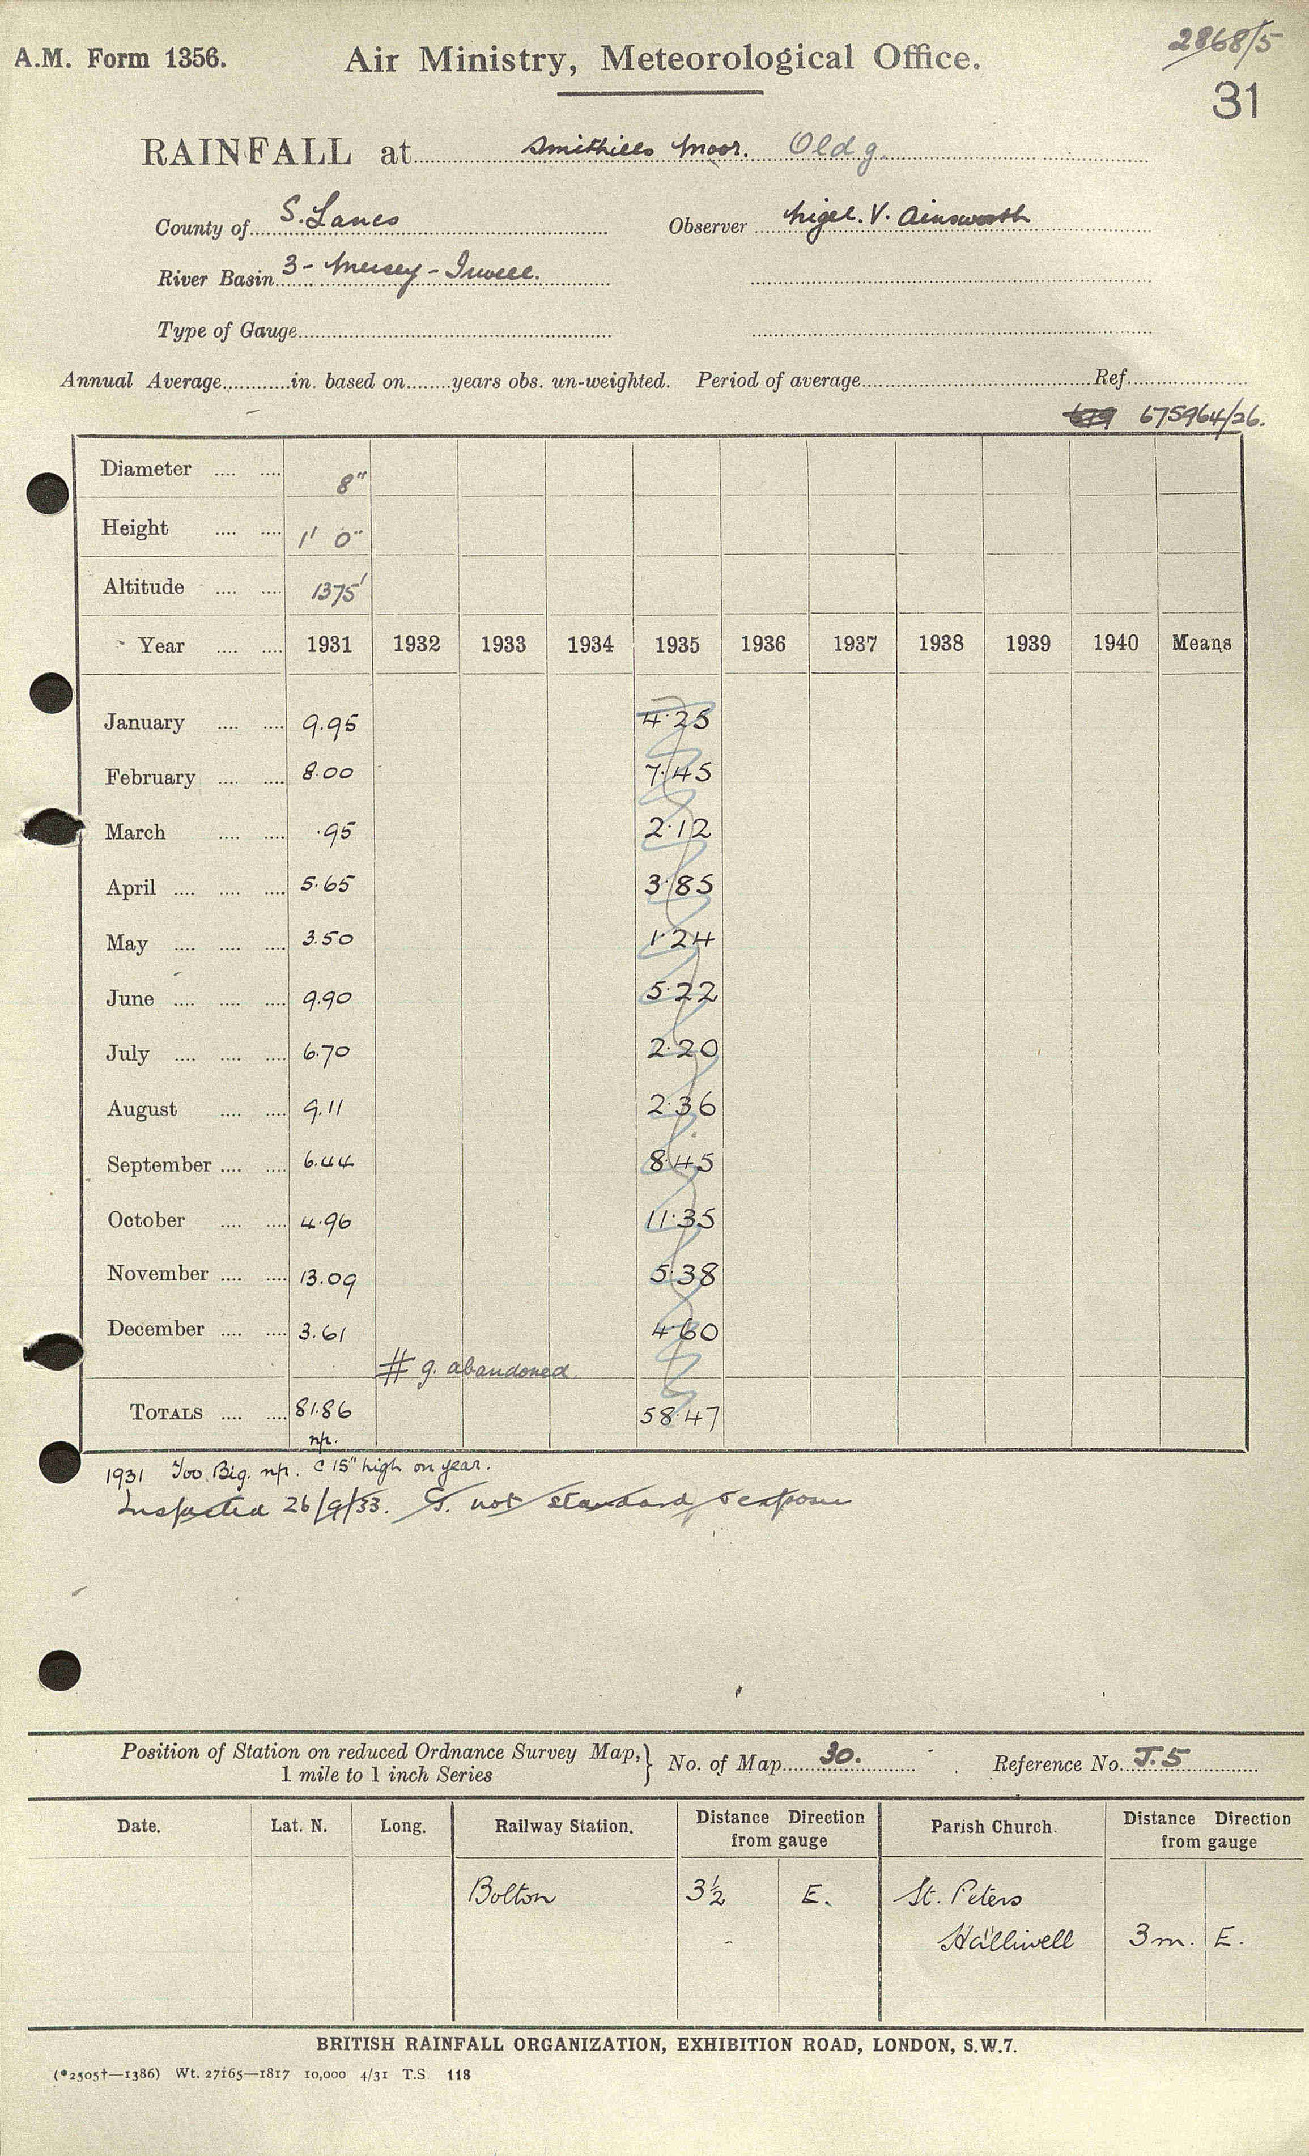 2868/5
A.M. Form 1356. Air Ministry, Meteorological Office.
31
RAINFALL at Smithills Moor. Old g.
County of S. Lancs Observer Nigel. V. Ainsworth
River Basin 3 - Mersey - Irwell.
Type of Gauge
Annual Average in. based on years obs. un-weighted. Period of average Ref.
679 675964/26.
Diameter 8"
Height 1' 0"
Altitude 1375'
Year 1931 1932 1933 1934 1935 1936 1937 1938 1939 1940 Means
January 9.95 4.25
February 8.00 7.45
March .95 2.12
April 5.65 3.85
May 3.50 1.24
June 9.90 5.22
July 6.70 2.20
August 9.11 2.36
September 6.44 8.45
October 4.96 11.35
November 13.09 5.38
December 3.61 4.60
# g. abandoned
TOTALS 81.86 58.47
np.
1931 Too Big. np. c 15" high on year.
Inspected 26/9/33. G. not standard
Position of Station on reduced Ordnance Survey Map, } No. of Map 30. Reference No. J.5
1 mile to 1 inch Series
Date. Lat. N. Long. Railway Station. Distance Direction from gauge Parish Church. Distance Direction from gauge
Bolton 3½ E. St. Peters
Halliwell 3 m. E.
BRITISH RAINFALL ORGANIZATION, EXHIBITION ROAD, LONDON, S.W.7.
(*2505†—1386) Wt. 27165—1817 10,000 4/31 T.S 118